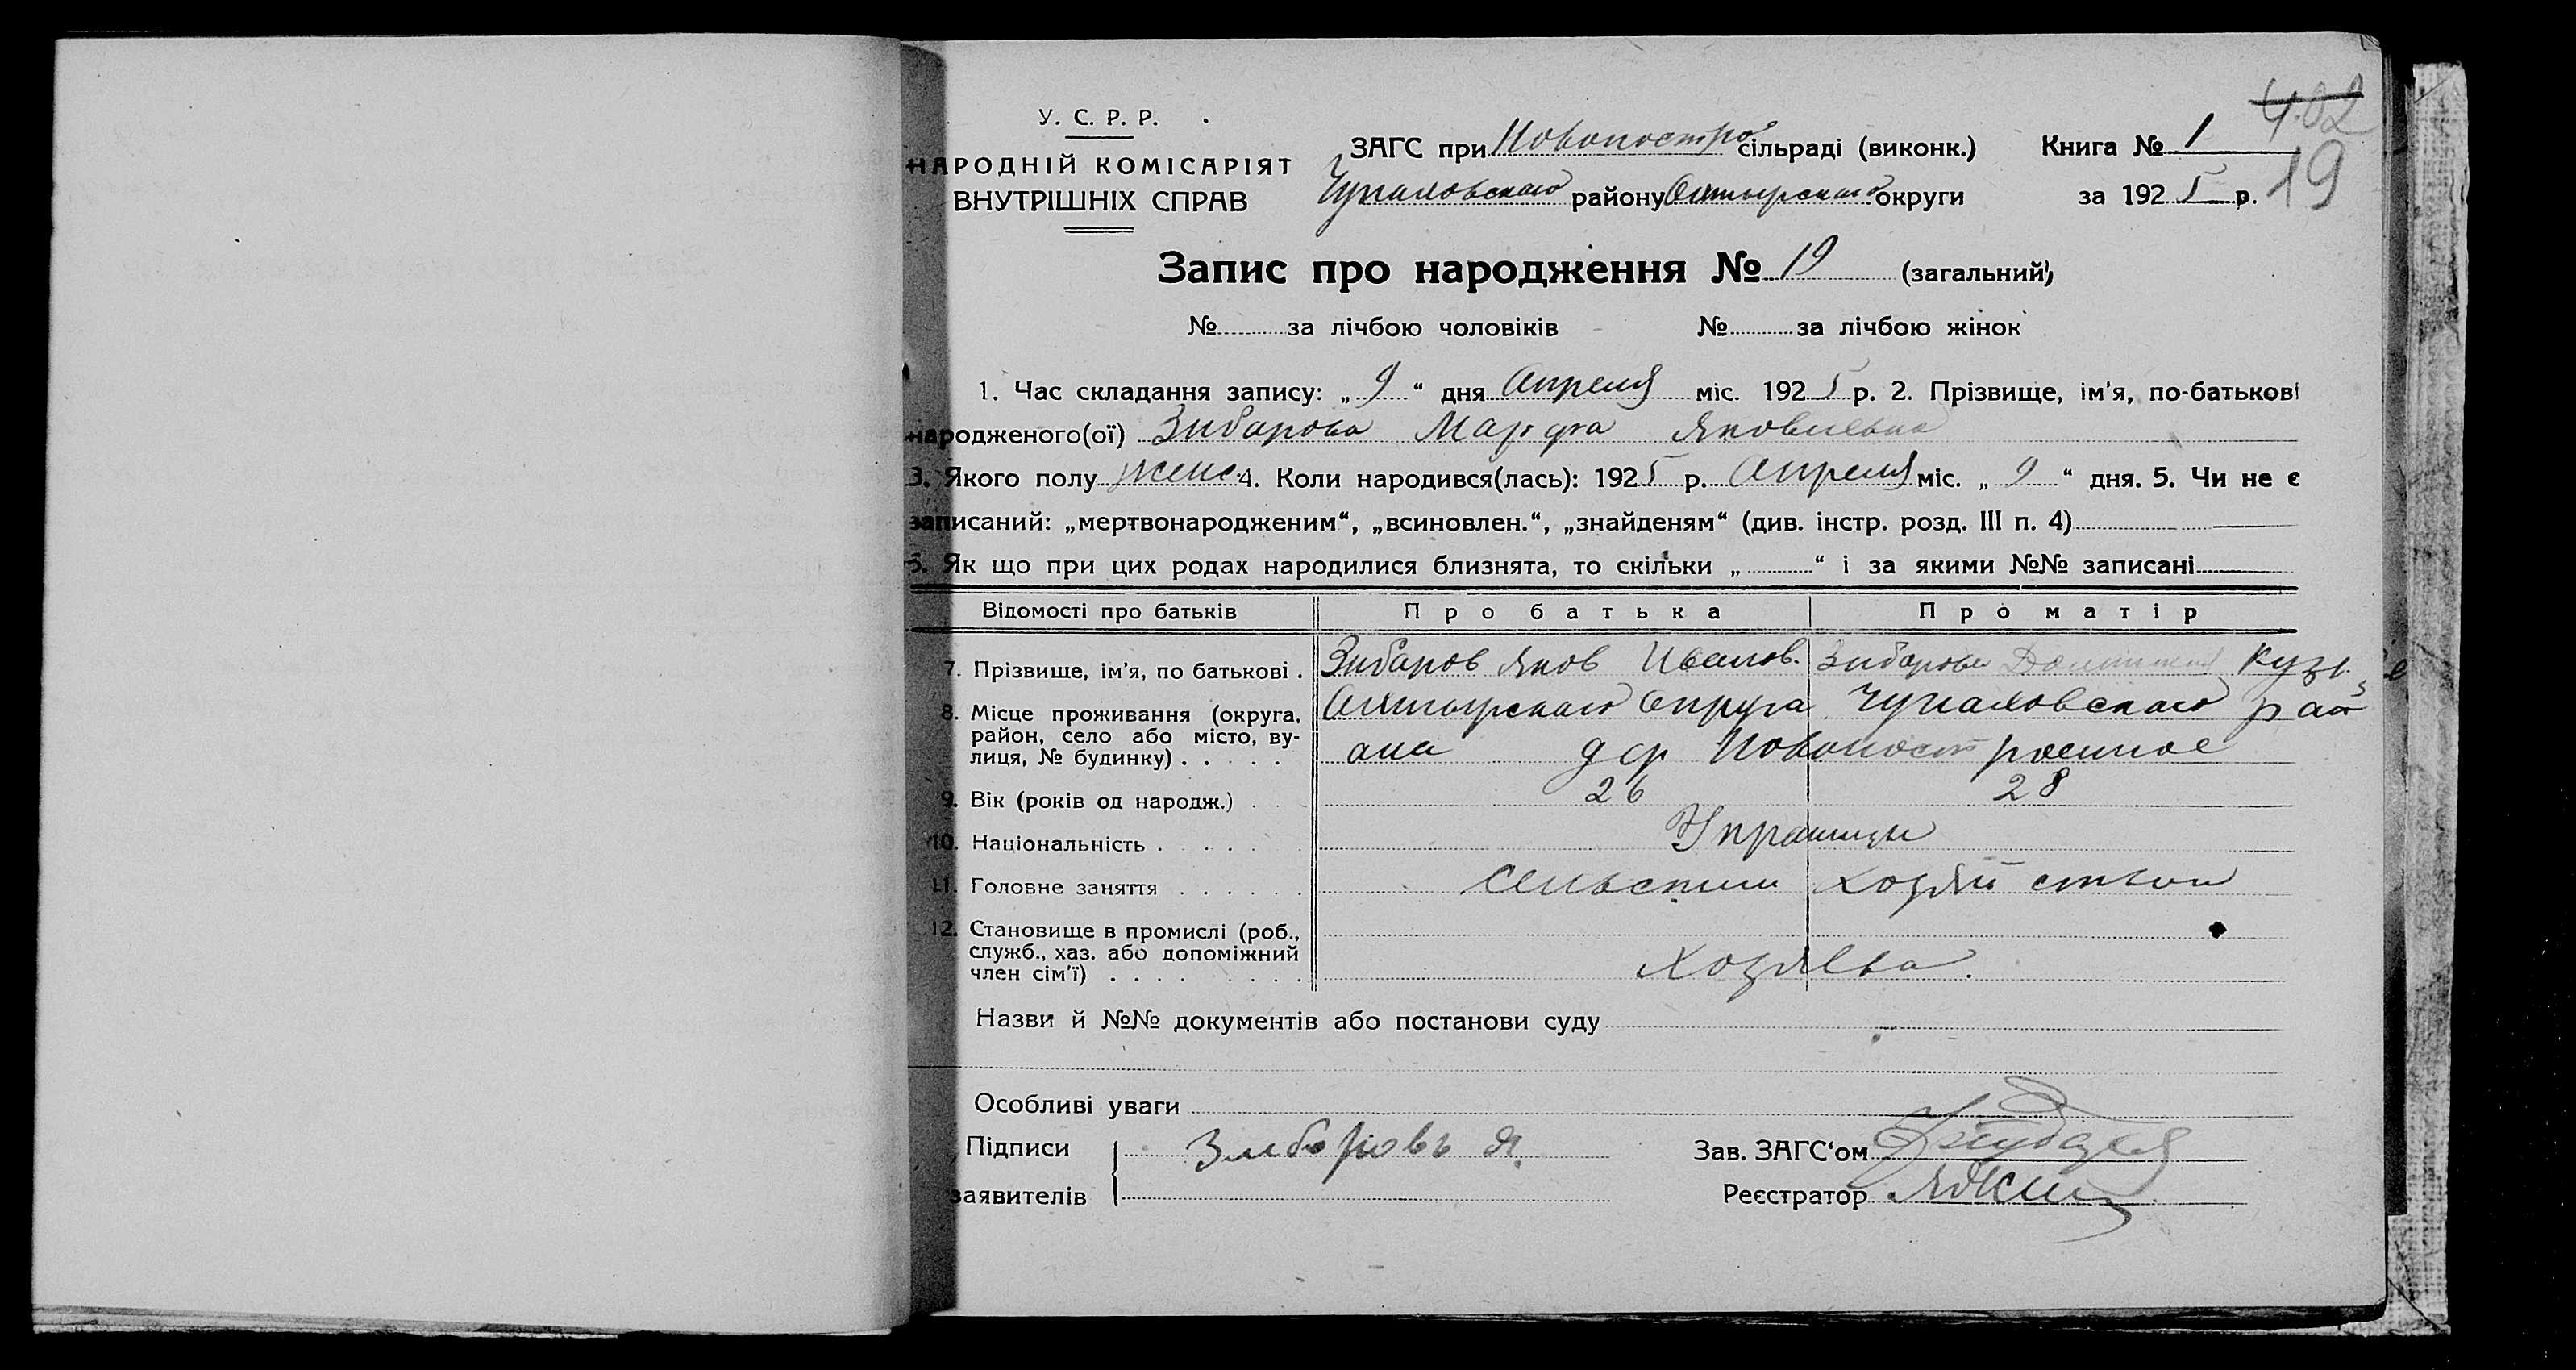 У. С. Р. Р.
НАРОДНІЙ КОМІСАРІЯТ
ВНУТРІШНІХ СПРАВ
ЗАГС при Новопостро сільраді (виконк.) Книга № 1
402
Чупаховскаго району Ахтырскаго округи за 1925 р.
19
Запис про народження № 19 (загальний)
№ за лічбою чоловіків № за лічбою жінок
1. Час складання запису: „ 9 “ дня Апреля міс. 1925 р. 2. Прізвище, ім'я, по-батькові
народженого(ої) Зибарова Марфа Яковлевна
3. Якого полу женс. 4. Коли народився(лась): 1925 р. Апреля міс. „ 9 “ дня. 5. Чи не є
записаний: „мертвонародженим“, „всиновлен.“, „знайденям“ (див. інстр. розд. III п. 4)
6. Як що при цих родах народилися близнята, то скільки „ “ і за якими №№ записані
Відомості про батьків Про батька Про матір
7. Прізвище, ім'я, по батькові . Зибаров Яков Иванов. Зибарова Кузь.
8. Місце проживання (округа, Ахтырскаго Округа Чупаховскаго рай
район, село або місто, ву-
лиця, № будинку) . . . . . она дер Новопостроеное
9. Вік (років од народж.) . . 26 28
10. Національність . . . . . Украинцы
11. Головне заняття . . . . . . Сельским Хозяйством
12. Становище в промислі (роб.,
служб., хаз. або допоміжний
член сім'ї) . . . . . . . . Хозяева.
Назви й №№ документів або постанови суду
Особливі уваги
Підписи Зибаровъ Я. Зав. ЗАГС‘ом
заявителів Реєстратор